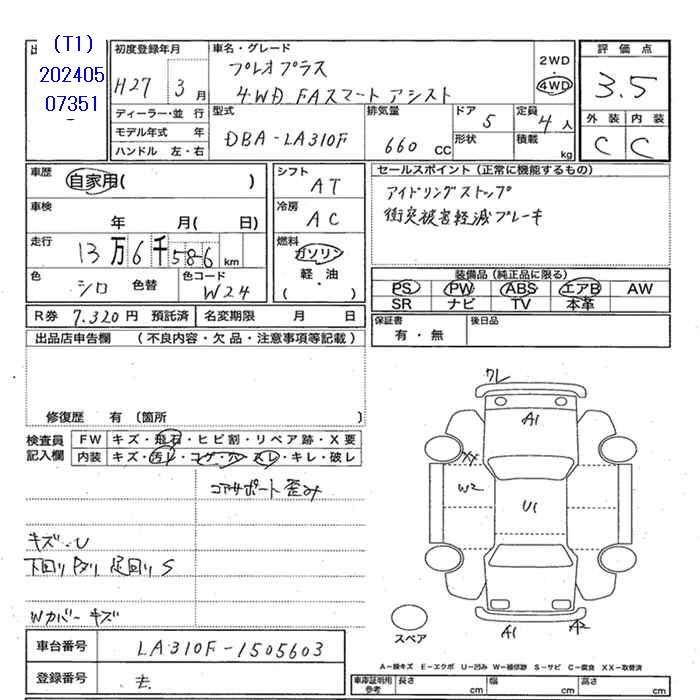 (T1)
202405
07351
初度登録年月
H27 3月
ディーラー・並行
モデル年式 年
ハンドル 左・右
車名・グレード
プレオプラス
4WD FAスマートアシスト
2WD
・
4WD
型式
DBA-LA310F
排気量
660 CC
ドア
5
形状
定員
4人
積載
kg
評価点
3.5
外装 内装
C C
車歴
自家用( )
車検
年 月( 日)
走行
13万6千586km
色
シロ 色替
色コード
W24
シフト
AT
冷房
AC
燃料
ガソリン
軽・油
( )
セールスポイント(正常に機能するもの)
アイドリングストップ
衝突被害軽減ブレーキ
装備品(純正品に限る)
PS PW ABS エアB AW
SR ナビ TV 本革
R券 7.320円 預託済
名変期限 月 日
保証書
有・無
後日品
出品店申告欄 (不良内容・欠品・注意事項等記載)
修復歴 有 〔箇所 〕
検査員
記入欄
FW キズ・飛石・ヒビ割・リペア跡・X要
内装 キズ・汚レ・コゲ・穴・スレ・キレ・破レ
コアサポート歪み
キズ.U
下回り 足回りS
Wカバーキズ
ワレ
A1
XX
W2
U1
A1
A2
スペア
車台番号 LA310F-1505603
登録番号
A-線キズ E-エクボ U-凹み W-補修跡 S-サビ C-腐食 XX-取替済
車庫証明用
参考
長さ cm
幅 cm
高さ cm